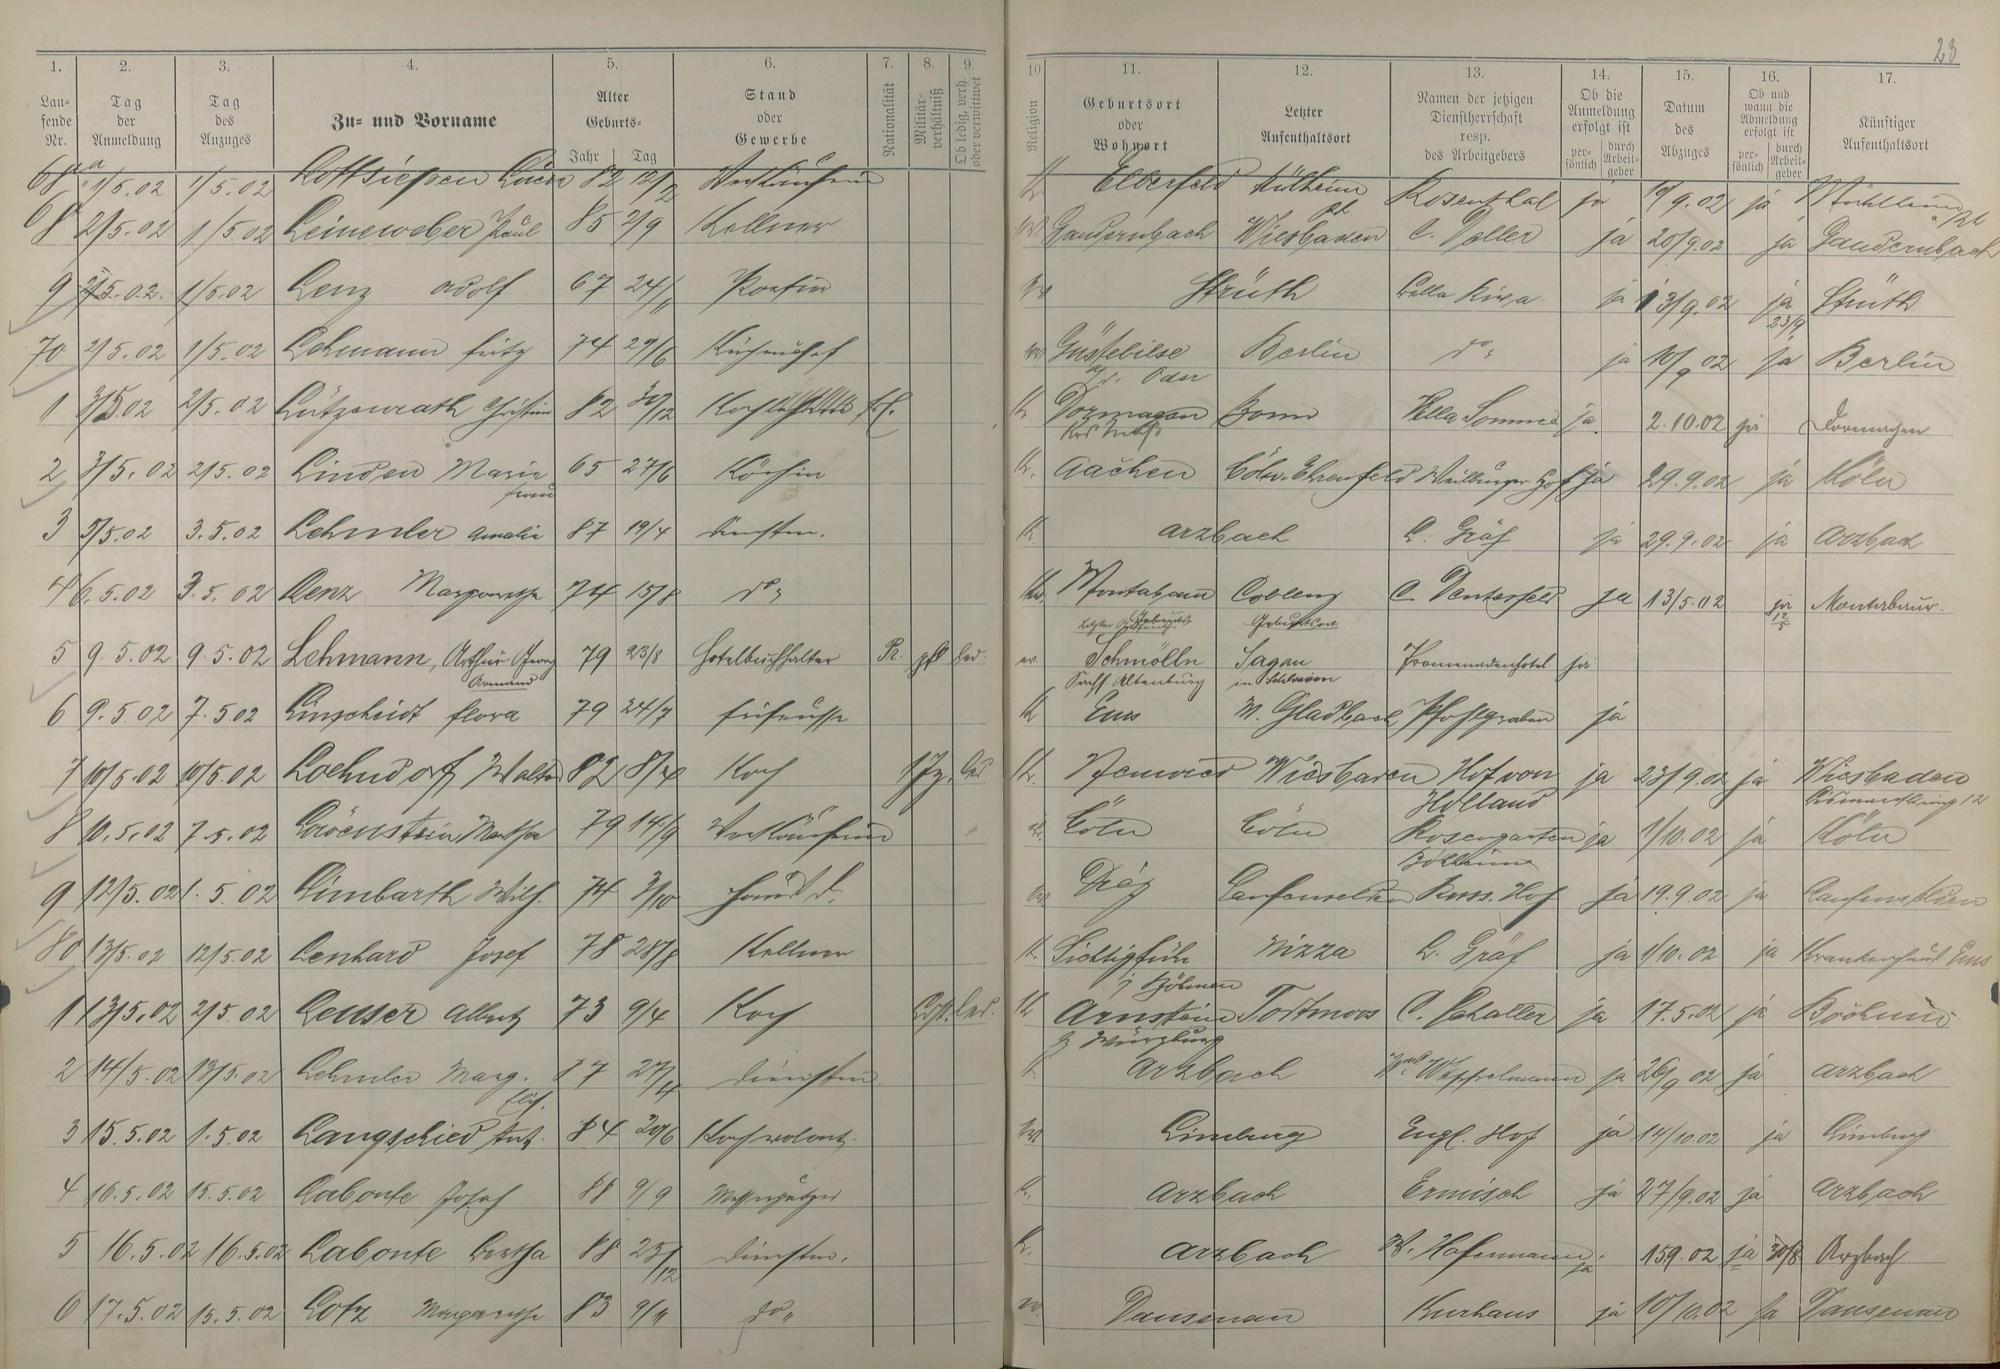 23
1. 2. 3. 4. 5. 6. 7. 8. 9. 10 11. 12. 13. 14. 15. 16. 17.
Lau-
fende
Nr.
Tag
der
Anmeldung
Tag
des
Anzuges
Zu- und Vorname
Alter
Geburts-
Jahr Tag
Stand
oder
Gewerbe
Nationalität
Militär-
verhältniß
Ob ledig, verh.
oder verwittwet
Religion
Geburtsort
oder
Wohnort
Letzter
Aufenthaltsort
Namen der jetzigen
Dienstherrschaft
resp.
des Arbeitgebers
Ob die
Anmeldung
erfolgt ist
per-
sönlich
durch
Arbeit-
geber
Datum
des
Abzuges
Ob und
wann die
Abmeldung
erfolgt ist
per-
sönlich
durch
Arbeit-
geber
Künftiger
Aufenthaltsort
1/5.02 1/5.02 Lottsiepen 82 Verkäuferin K Elberfeld Mülheim Rosenthal ja 10/9.02 ja Mühlheim
8 2/5.02 1/5.02 Leineweber Paul 85 2/9 Kellner Gaudernbach Wiesbaden C. ja 20/9.02 ja Gaudernbach
9 2/5.02 1/5.02 Lenz Adolf 67 24/11 Portier Strüth Villa Riva ja 13/9.02 ja Strüth
23/9
70 2/5.02 1/5.02 Lehmann Fritz 74 29/6 Küchenchef Güstebiese Berlin do ja 10/9 02 ja Berlin
a/d. Oder
1 3/5.02 2/5.02 Lützenrath Christine 82 30/12 K. Dormagen Bonn Villa Sommer ja. 2.10.02 ja Dormagen
2 3/5.02 2/5.02 Linden Marie 65 27/6 Köchin K. Aachen Cöln-Ehrenfeld Weilburger Hof ja 29.9.02 ja Köln
Frau
3 5/5.02 3.5.02 Lehmler Amalie 87 19/4 Dienstm. K. Arzbach L. Gräf ja 29.9.02 ja Arzbach
4 6.5.02 3.5.02 Lenz Margarethe 74 15/8 do Montabaur Coblenz C. ja 13/5.02 ja Montabaur.
Geburtsort
5 9.5.02 9.5.02 Lehmann, Arthur Georg 79 23/8 Hotelbuchhalter Pr. led. ev. Schmölln Sagan Promenadenhotel ja
Armand Sachs. Altenburg in Schlesien
6 9.5.02 7.5.02 Linscheidt Flora 79 24/7 Friseusse K Ems M. Gladbach Pfahlgraben ja
7 10/5.02 10/5.02 Loehndorf Walter 82 Koch led K. Neuwied Wiesbaden Hof von ja 23/9.02 ja Wiesbaden
Holland Bismarckring 12
8 10.5.02 7.5.02 Löwenstein Martha 79 14/9 Verkäuferin Cöln Cöln Rosengarten ja 1/10.02 ja Köln
9 12/5.02 1.5.02 Limbarth Wilh. 74 3/10 Hausd. Diez Laufenselden Russ. Hof ja 19.9.02 ja Laufenselden
80 13/5.02 12/5.02 Lenhard Josef 78 28/8 Kellner K. Nizza L. Gräf ja 1/10.02 ja Krankenhaus Ems
i/ Böhmen
1 13/5.02 2/5.02 Leuser Albert 73 9/4 Koch led. K Arnstein Todtmoos C. Schaller ja 17.5.02 ja
b/ Würzburg
2 14/5.02 13/5.02 Lehmler Marg. 87 27/4 Dienstm. K. Arzbach ja 26/9 02 ja Arzbach
Elis.
3 15.5.02 1.5.02 Langschied Ant. 84 Kochvolont. Limburg Engl. Hof ja 14/10.02 ja Limburg
4 16.5.02 15.5.02 Labonte Josef 88 9/9 Messerputzer K. Arzbach Ermisch ja 27/9.02 ja Arzbach
5 16.5.02 16.5.02 Labonte Bertha 88 25/12 Dienstm. K. Arzbach W. Hafermann. ja 15 9.02 ja 30/8 Arzbach
6 17.5.02 15.5.02 Lotz Margarethe 83 9/11 do Dausenau Kurhaus ja 10/10.02 ja Dausenau